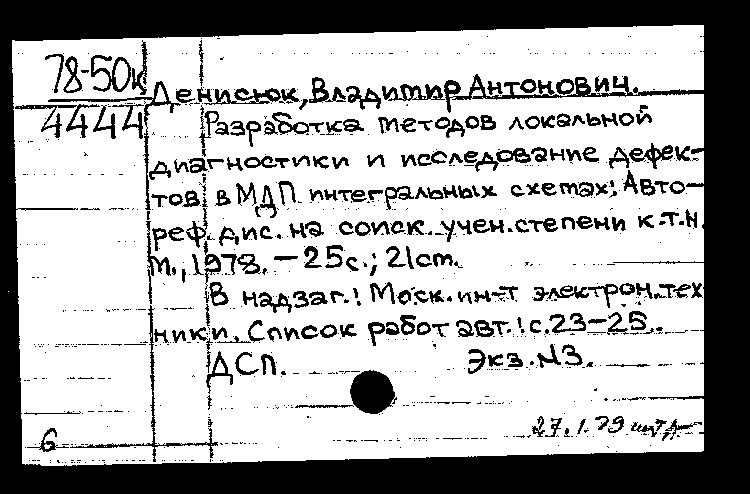 78-50к
4444
Денисюк, Владимир Антонович.
Разработка методов локальной
диагностики и исследование дефек-
тов в МДП интегральных схемах: Авто-
реф. дис. на соиск. учен. степени к.т.н.
М., 1978. - 25с.; 21см.
В надзаг.: Моск. ин-т электрон. тех
ники. Список работ авт.: с. 23-25.
ДСП. Экз. №3.
27.1.79
6